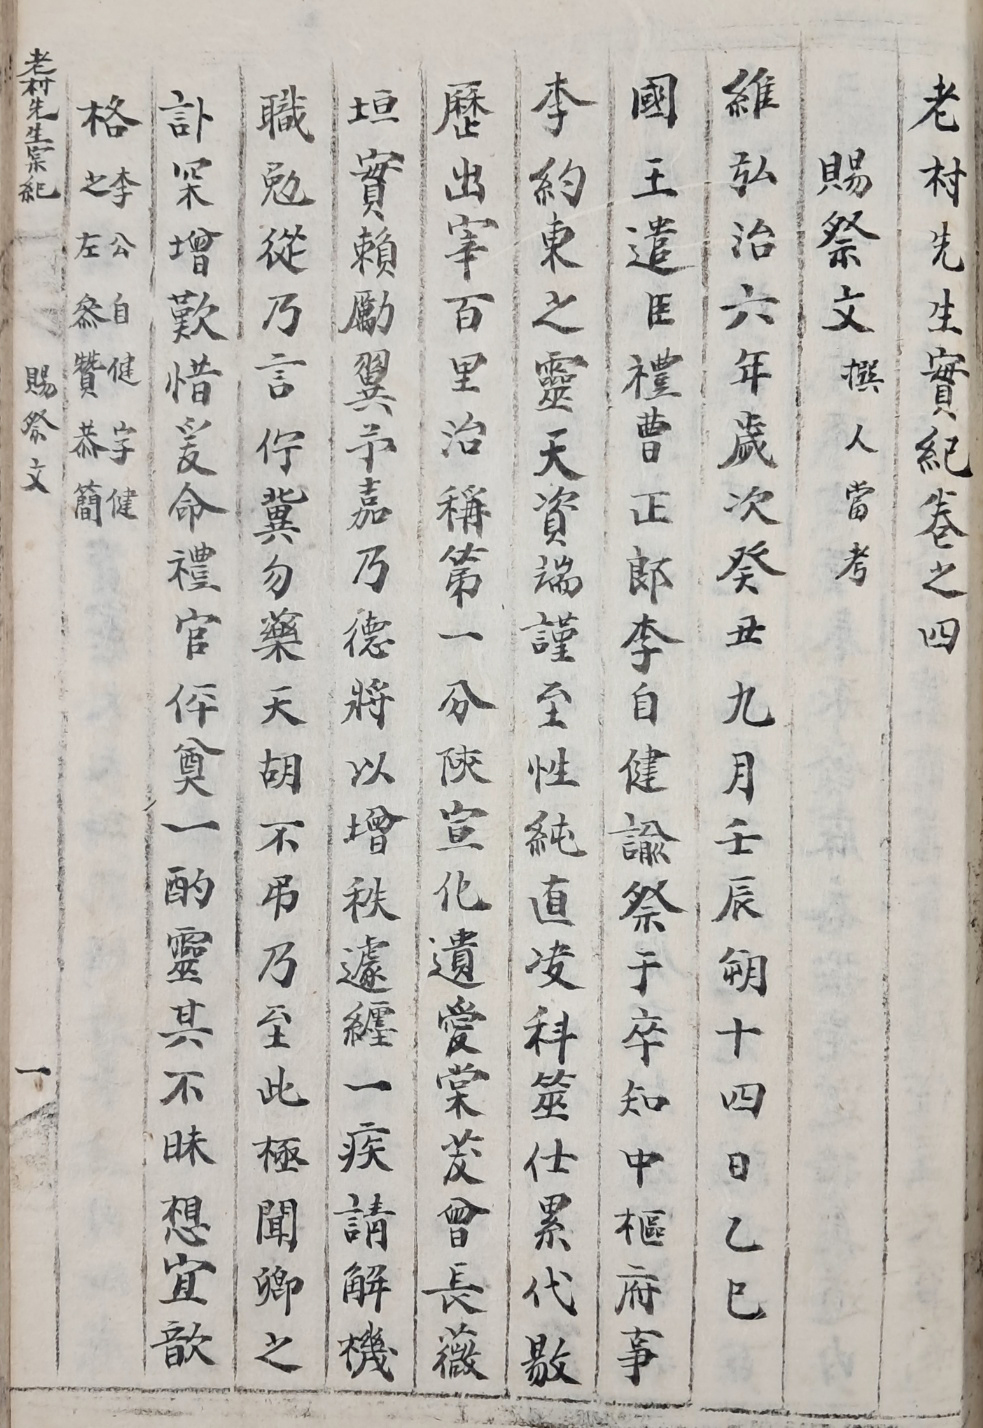 老村先生實紀卷之四
賜祭文 撰人當考
維弘治六年歲次癸丑九月壬辰朔十四日乙巳
國王遣臣禮曹正郎李自健諭祭于卒知中樞府事
李約東之靈天資端謹至性純直凌科筮仕累代敭
歷出宰百里治稱第一分陝宣化遺愛棠茇曾長薇
垣實賴勵翼予嘉乃德將以增秩遽纏一疾請解機
職勉從乃言佇冀勿藥天胡不吊乃至此極聞卿之
訃罙增歎惜爰命禮官伻奠一酌靈其不昧想宜歆
格 李公自健字健
之左叅贊恭簡
老村先生宲紀 賜祭文 一